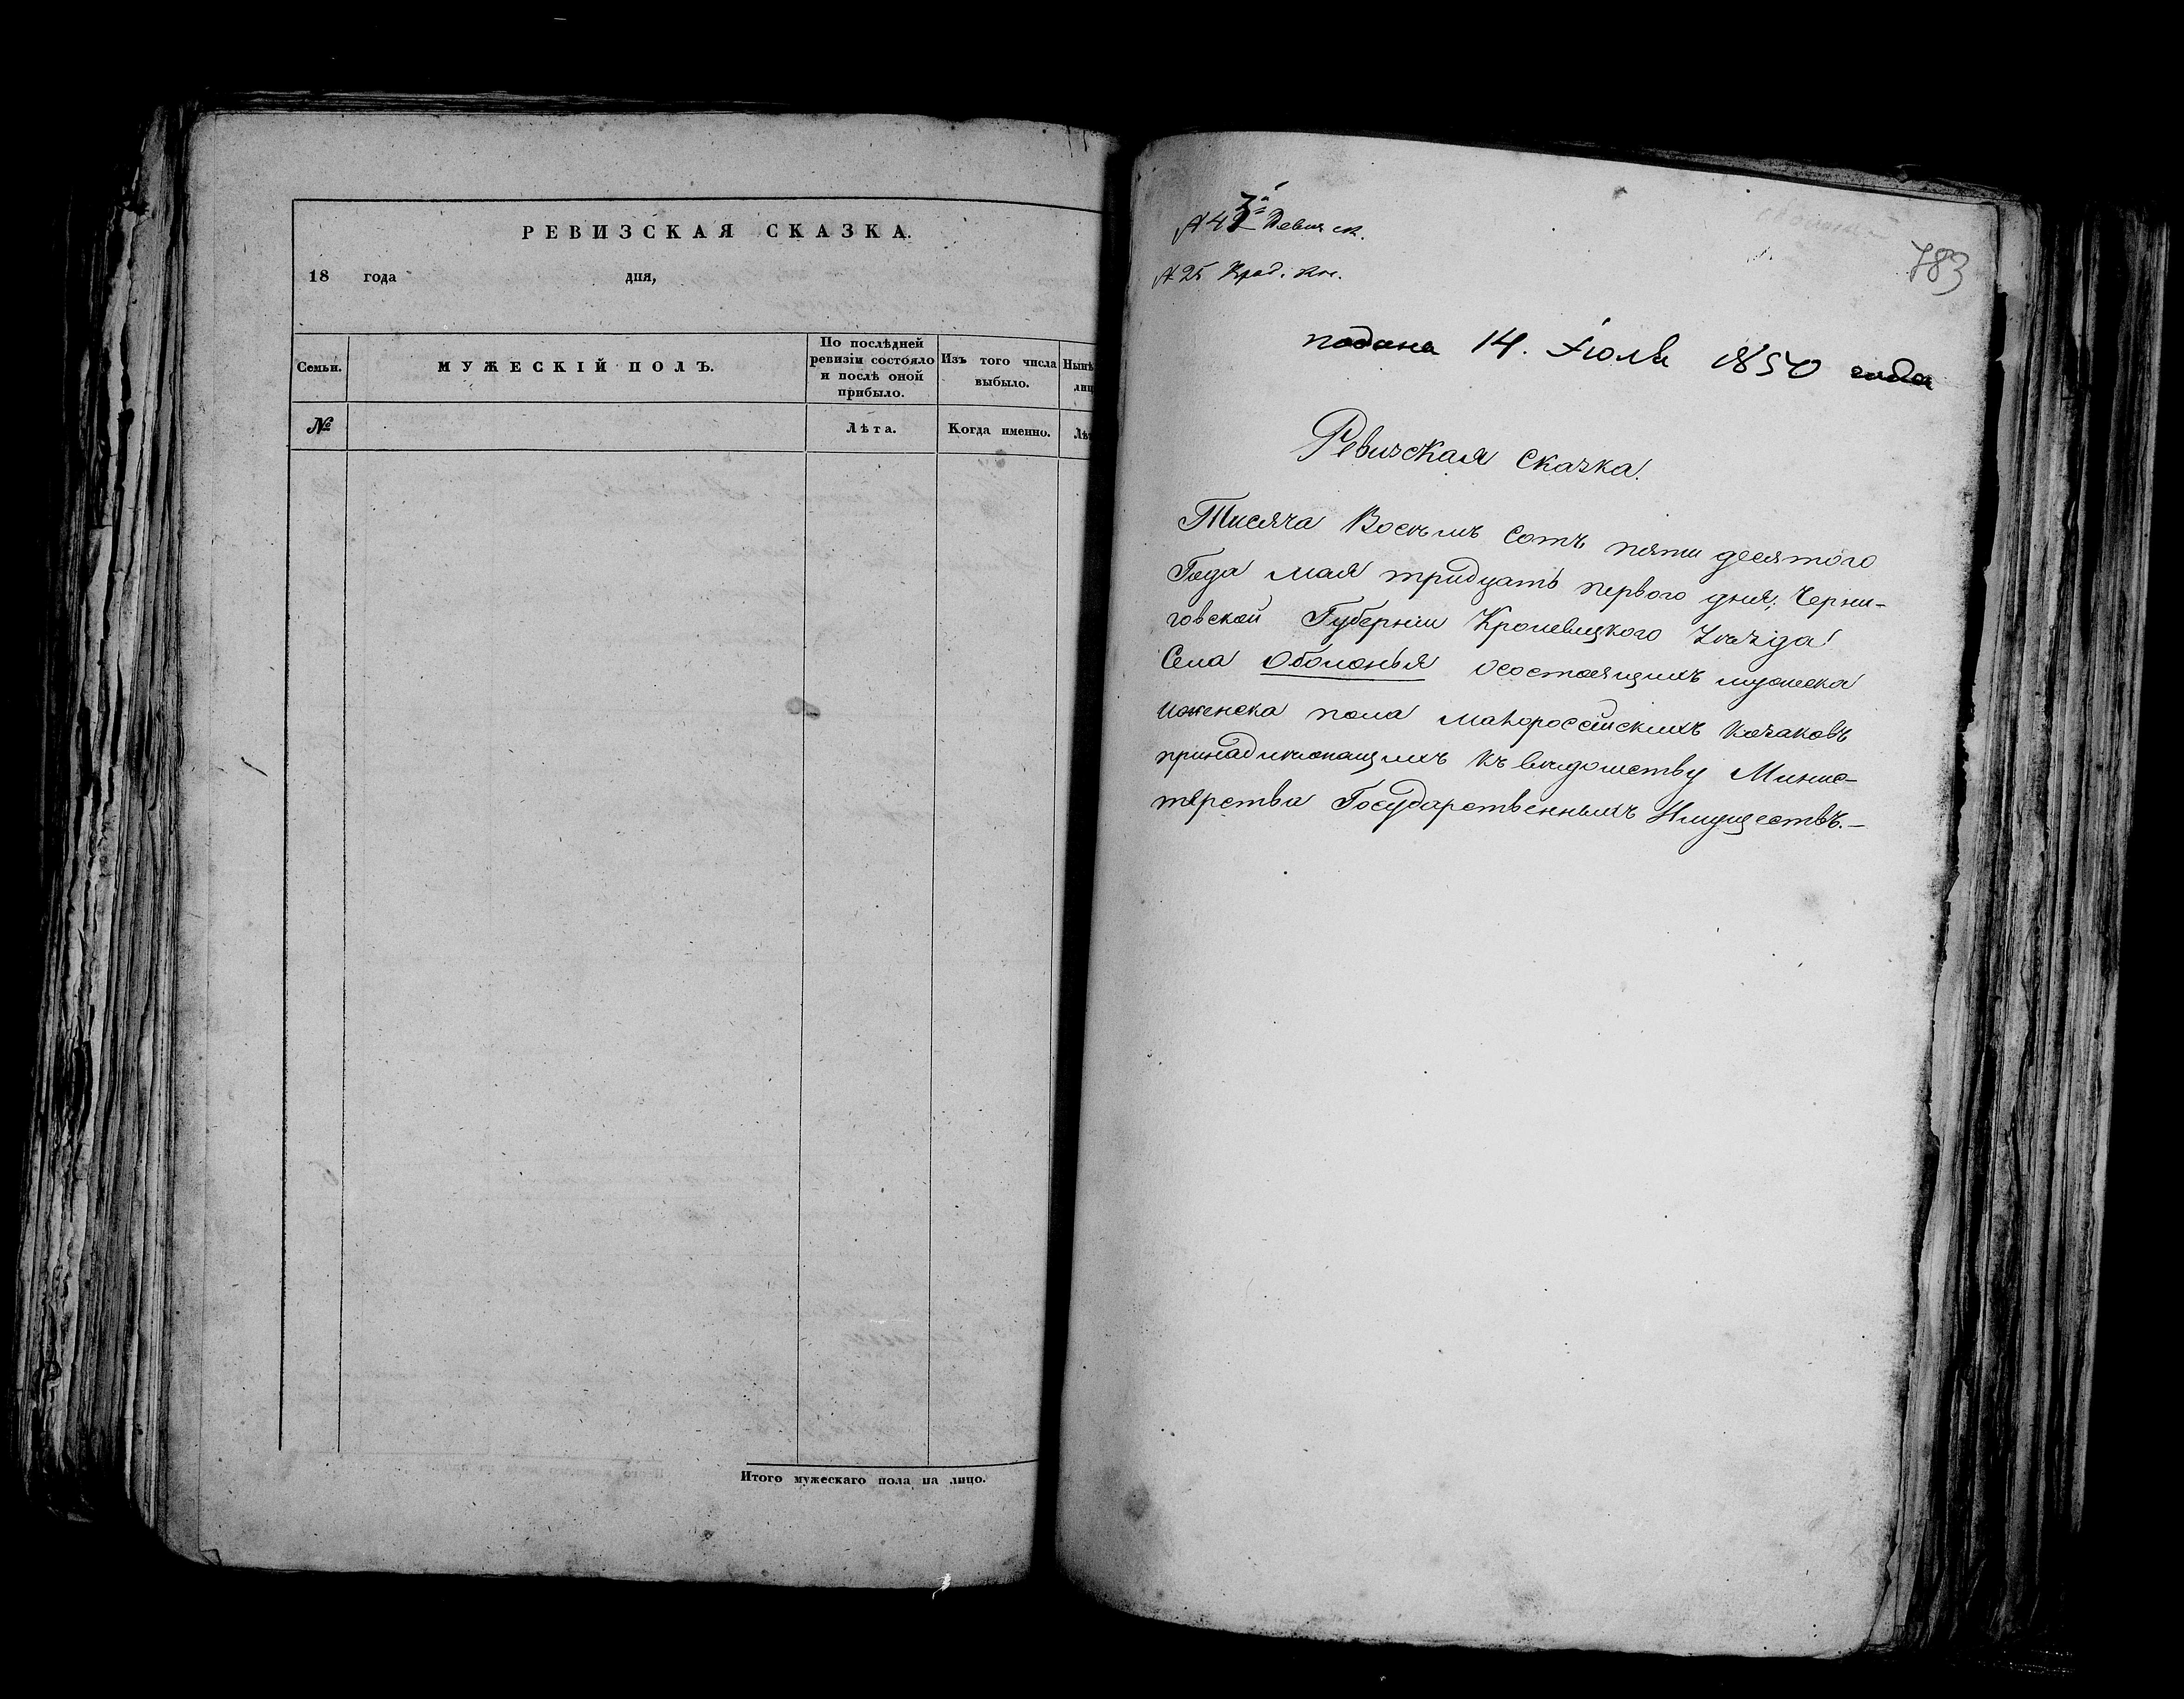 РЕВИЗСКАЯ СКАЗКА.
18 года дня,
Семьи.
МУЖЕСКІЙ ПОЛЪ.
По послѣдней
ревизіи состояло
и послѣ оной
прибыло.
Изъ того числа
выбыло.
Нынѣ
лиц
№
Лѣта.
Когда именно.
Лѣт
Итого мужескаго пола на лицо.
Ревиз ск.
№ 25
783
подана 14. Іюля 1850 года
Ревизская сказка.
Тисяча Восемъ Сотъ пяти десятого
Года мая тридцать первого дня, Черни-
говской Губерніи Кролевицкого Уѣзда
Села Оболонья осостоящихъ мужеска
иженска пола малоросейскихъ козаковъ
принадлежащихъ къ вѣдомству Минис-
терства Государственныхъ Имуществъ.—